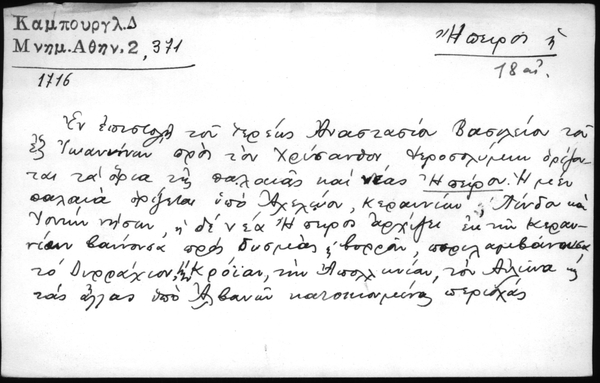 Καμπουργλ.Δ
Μνημ.Αθην.2, 371
Ἤπειρος ἡ
1716
18 αἰ.
Ἐν ἐπιστολῇ τοῦ ἱερέως Ἀναστασίου Βασιλείου τοῦ
ἐξ Ἰωαννίνων πρὸς τὸν Χρύσανθον Ἱεροσολύμων ὁρίζον-
ται τὰ ὅρια τῆς παλαιᾶς καὶ νέας Ἠπείρου. Ἡ μὲν
παλαιὰ ὁρίζεται ὑπὸ Ἀχελώου, κεραυνίων, Πίνδου καὶ
Ἰονίων νήσων, ἡ δὲ νέα Ἤπειρος ἀρχίζει ἐκ τῶν κεραυ-
νίων βαίνουσα πρὸς δυσμὰς ἢ βορρᾶν, περιλαμβάνουσα
τὸ Δυρράχιον, τὴν Κρόϊαν, τὴν Ἀπολλωνίαν, τὸν Αὐλῶνα ἢ
τὰς ἄλλας ὑπὸ Ἀλβανῶν κατοικουμένας περιοχάς